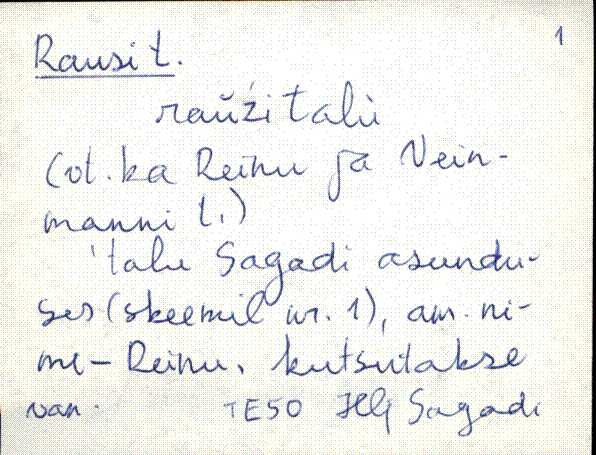 1
Rausi t.
raũži talù
(vt. ka Reinu ja Vein-
manni t.)
'talu Sagadi asundu-
ses (skeemil nr. 1), am. ni-
me - Reinu, kutsutakse
van. TE50 Hlj Sagadi